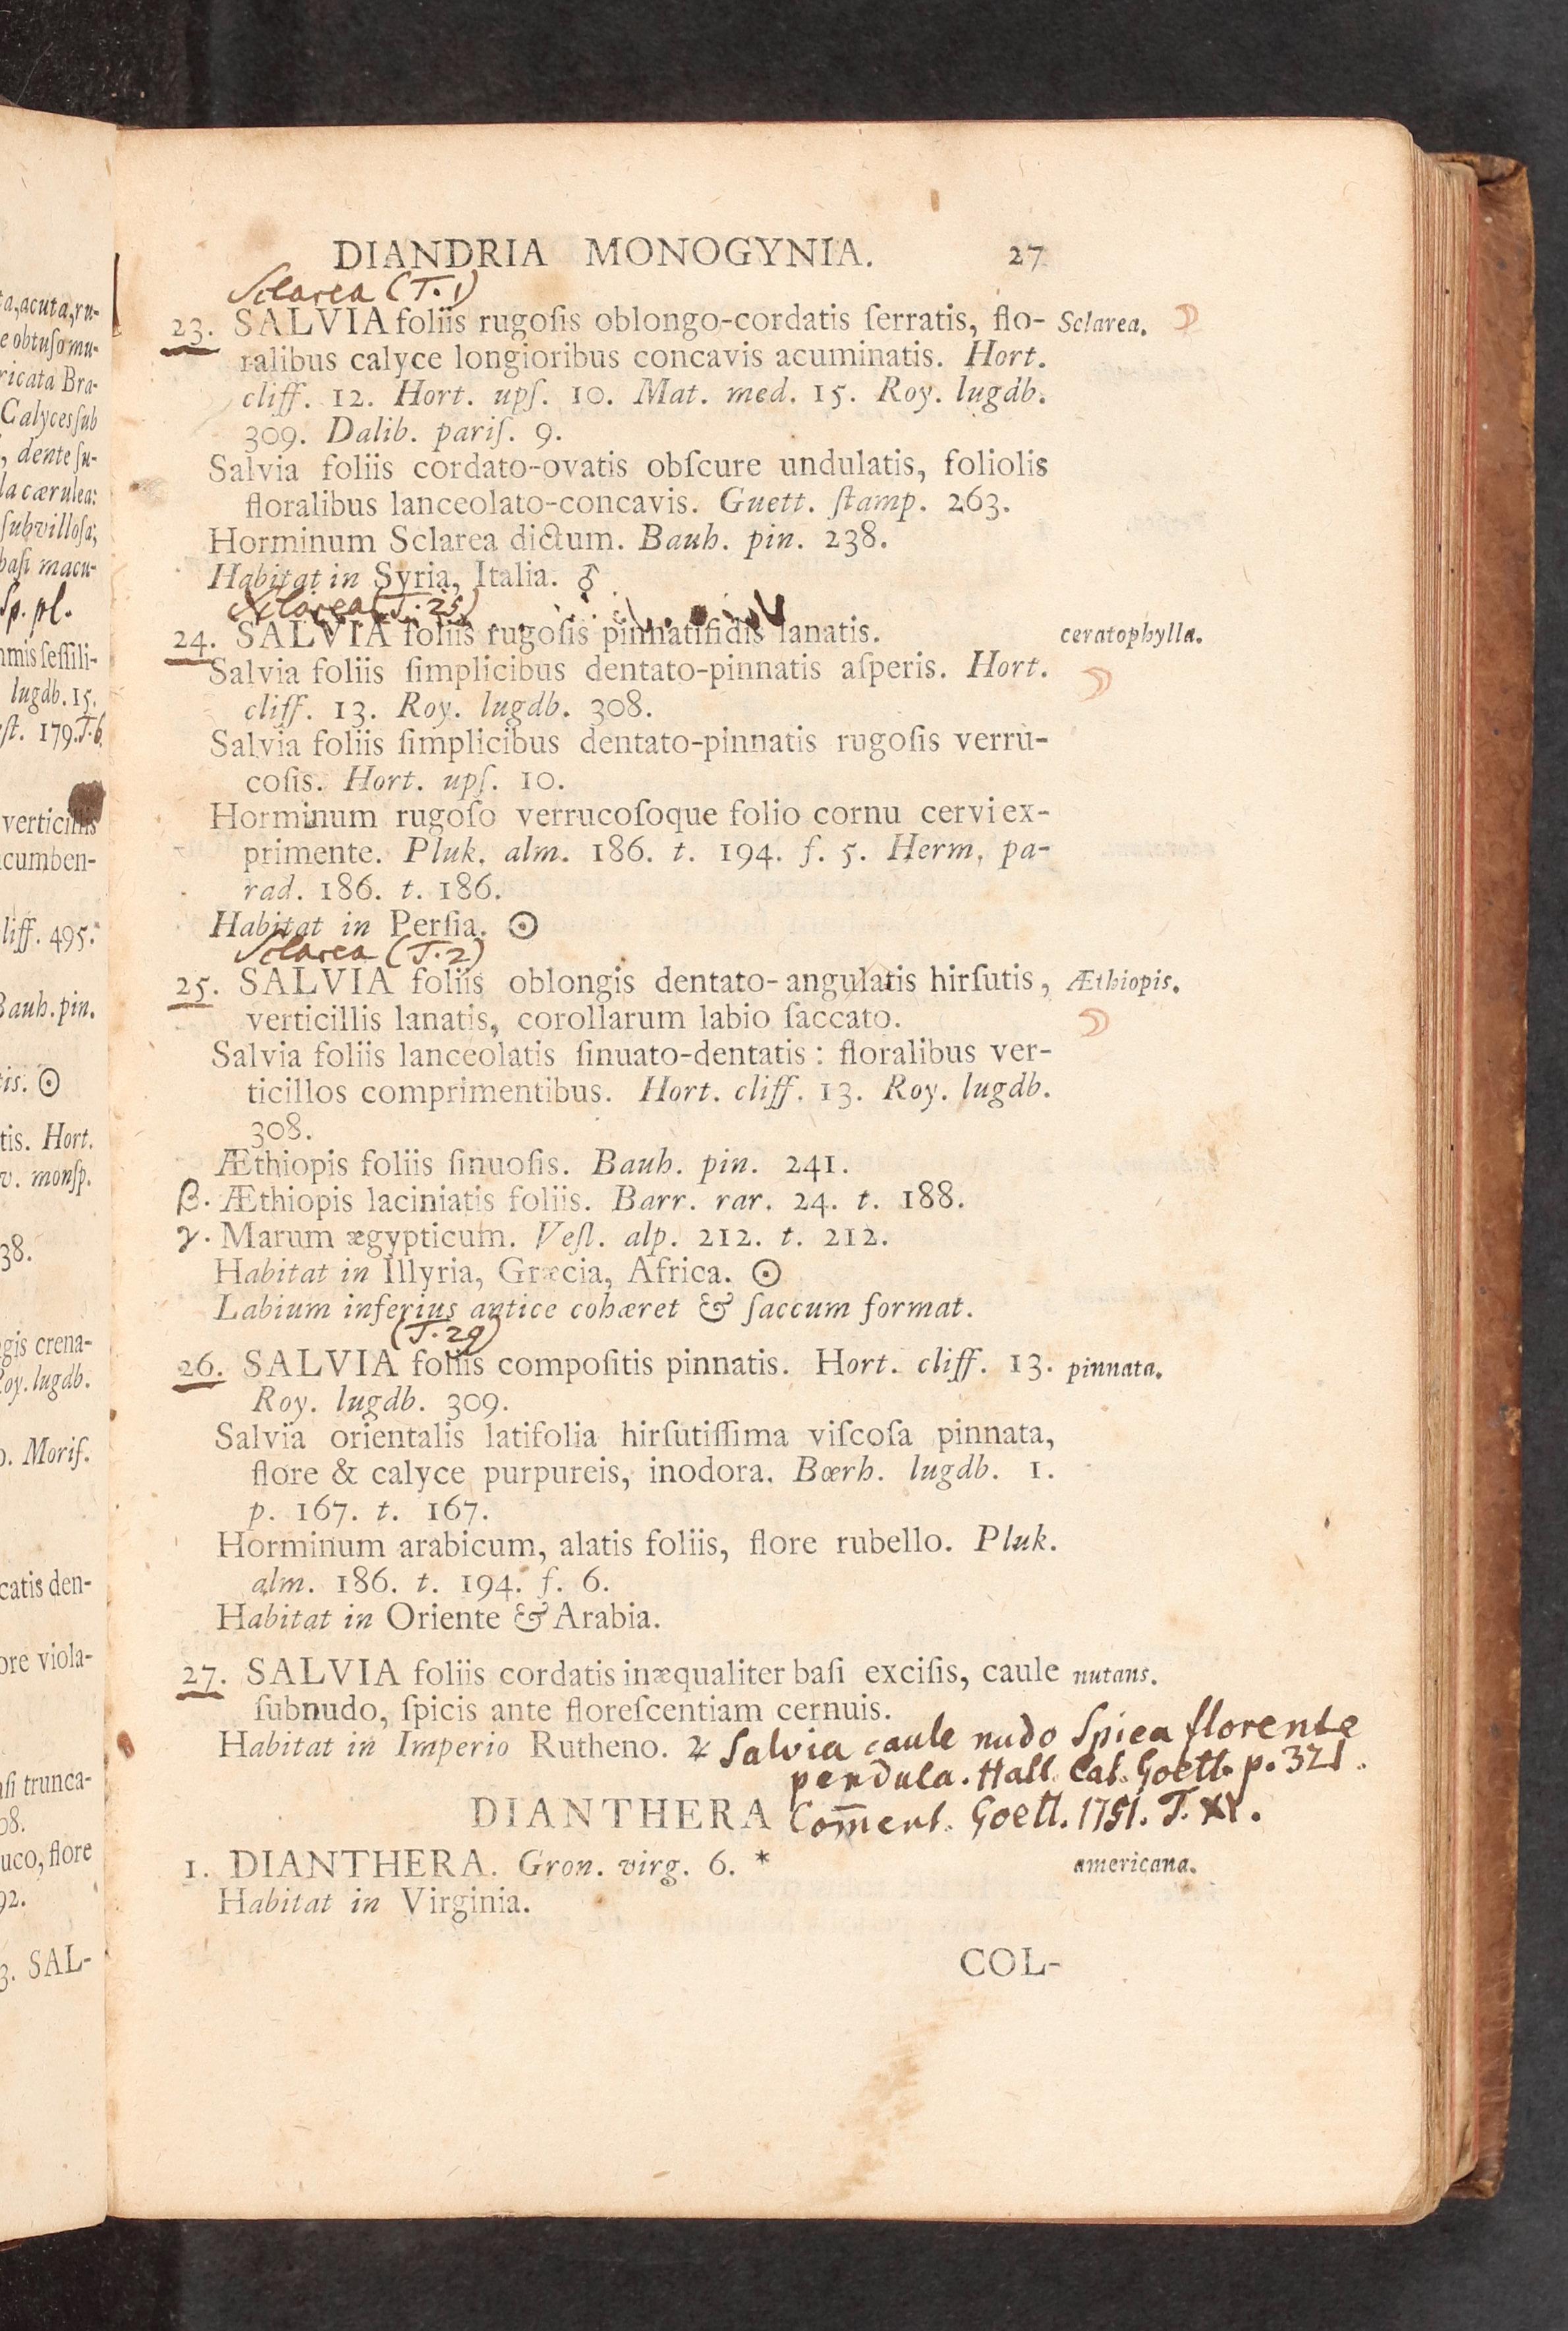 ta, acuta, ru-
e obtuso mu-
ricata Bra-
Calyces ſub
, dente ſu-
la cærulea:
ſubvilloſa;
baſi macu-
Sp. pl.
mis ſeſſili-
lugdb. 15.
eſt. 179. T. 6.
verticillis
cumben-
liff. 495.
Bauh. pin.
tis. ☉
tis. Hort.
v. monſp.
38.
gis crena-
Roy. lugdb.
o. Moriſ.
catis den-
ore viola-
aſi trunca-
08.
uco, flore
92.
3. SAL-
DIANDRIA MONOGYNIA. 27
Sclarea (T. 1)
23. SALVIA foliis rugoſis oblongo-cordatis ſerratis, flo- Sclarea.
ralibus calyce longioribus concavis acuminatis. Hort.
cliff. 12. Hort. upſ. 10. Mat. med. 15. Roy. lugdb.
309. Dalib. pariſ. 9.
Salvia foliis cordato-ovatis obſcure undulatis, foliolis
floralibus lanceolato-concavis. Guett. ſtamp. 263.
Horminum Sclarea dictum. Bauh. pin. 238.
Habitat in Syria, Italia. ♂
Sclarea (T. 25)
24. SALVIA foliis rugoſis pinnatifidis lanatis. ceratophylla.
Salvia foliis ſimplicibus dentato-pinnatis aſperis. Hort.
cliff. 13. Roy. lugdb. 308.
Salvia foliis ſimplicibus dentato-pinnatis rugoſis verru-
coſis. Hort. upſ. 10.
Horminum rugoſo verrucoſoque folio cornu cervi ex-
primente. Pluk. alm. 186. t. 194. f. 5. Herm. pa-
rad. 186. t. 186.
Habitat in Perſia. ☉
Sclarea (T. 2)
25. SALVIA foliis oblongis dentato-angulatis hirſutis, Æthiopis.
verticillis lanatis, corollarum labio ſaccato.
Salvia foliis lanceolatis ſinuato-dentatis: floralibus ver-
ticillos comprimentibus. Hort. cliff. 13. Roy. lugdb.
308.
Æthiopis foliis ſinuoſis. Bauh. pin. 241.
β. Æthiopis laciniatis foliis. Barr. rar. 24. t. 188.
γ. Marum ægypticum. Veſl. alp. 212. t. 212.
Habitat in Illyria, Græcia, Africa. ☉
Labium inferius antice cohæret & ſaccum format.
(T. 29)
26. SALVIA foliis compoſitis pinnatis. Hort. cliff. 13. pinnata.
Roy. lugdb. 309.
Salvia orientalis latifolia hirſutiſſima viſcoſa pinnata,
flore & calyce purpureis, inodora. Bœrh. lugdb. 1.
p. 167. t. 167.
Horminum arabicum, alatis foliis, flore rubello. Pluk.
alm. 186. t. 194. f. 6.
Habitat in Oriente & Arabia.
27. SALVIA foliis cordatis inæqualiter baſi exciſis, caule nutans.
ſubnudo, ſpicis ante floreſcentiam cernuis.
Habitat in Imperio Rutheno. ♃ Salvia caule nudo Spica florente
pendula. Hall. Cat. Goett. p. 321.
DIANTHERA Com̄ent. Goett. 1751. T. XX.
1. DIANTHERA. Gron. virg. 6. * americana.
Habitat in Virginia.
COL-